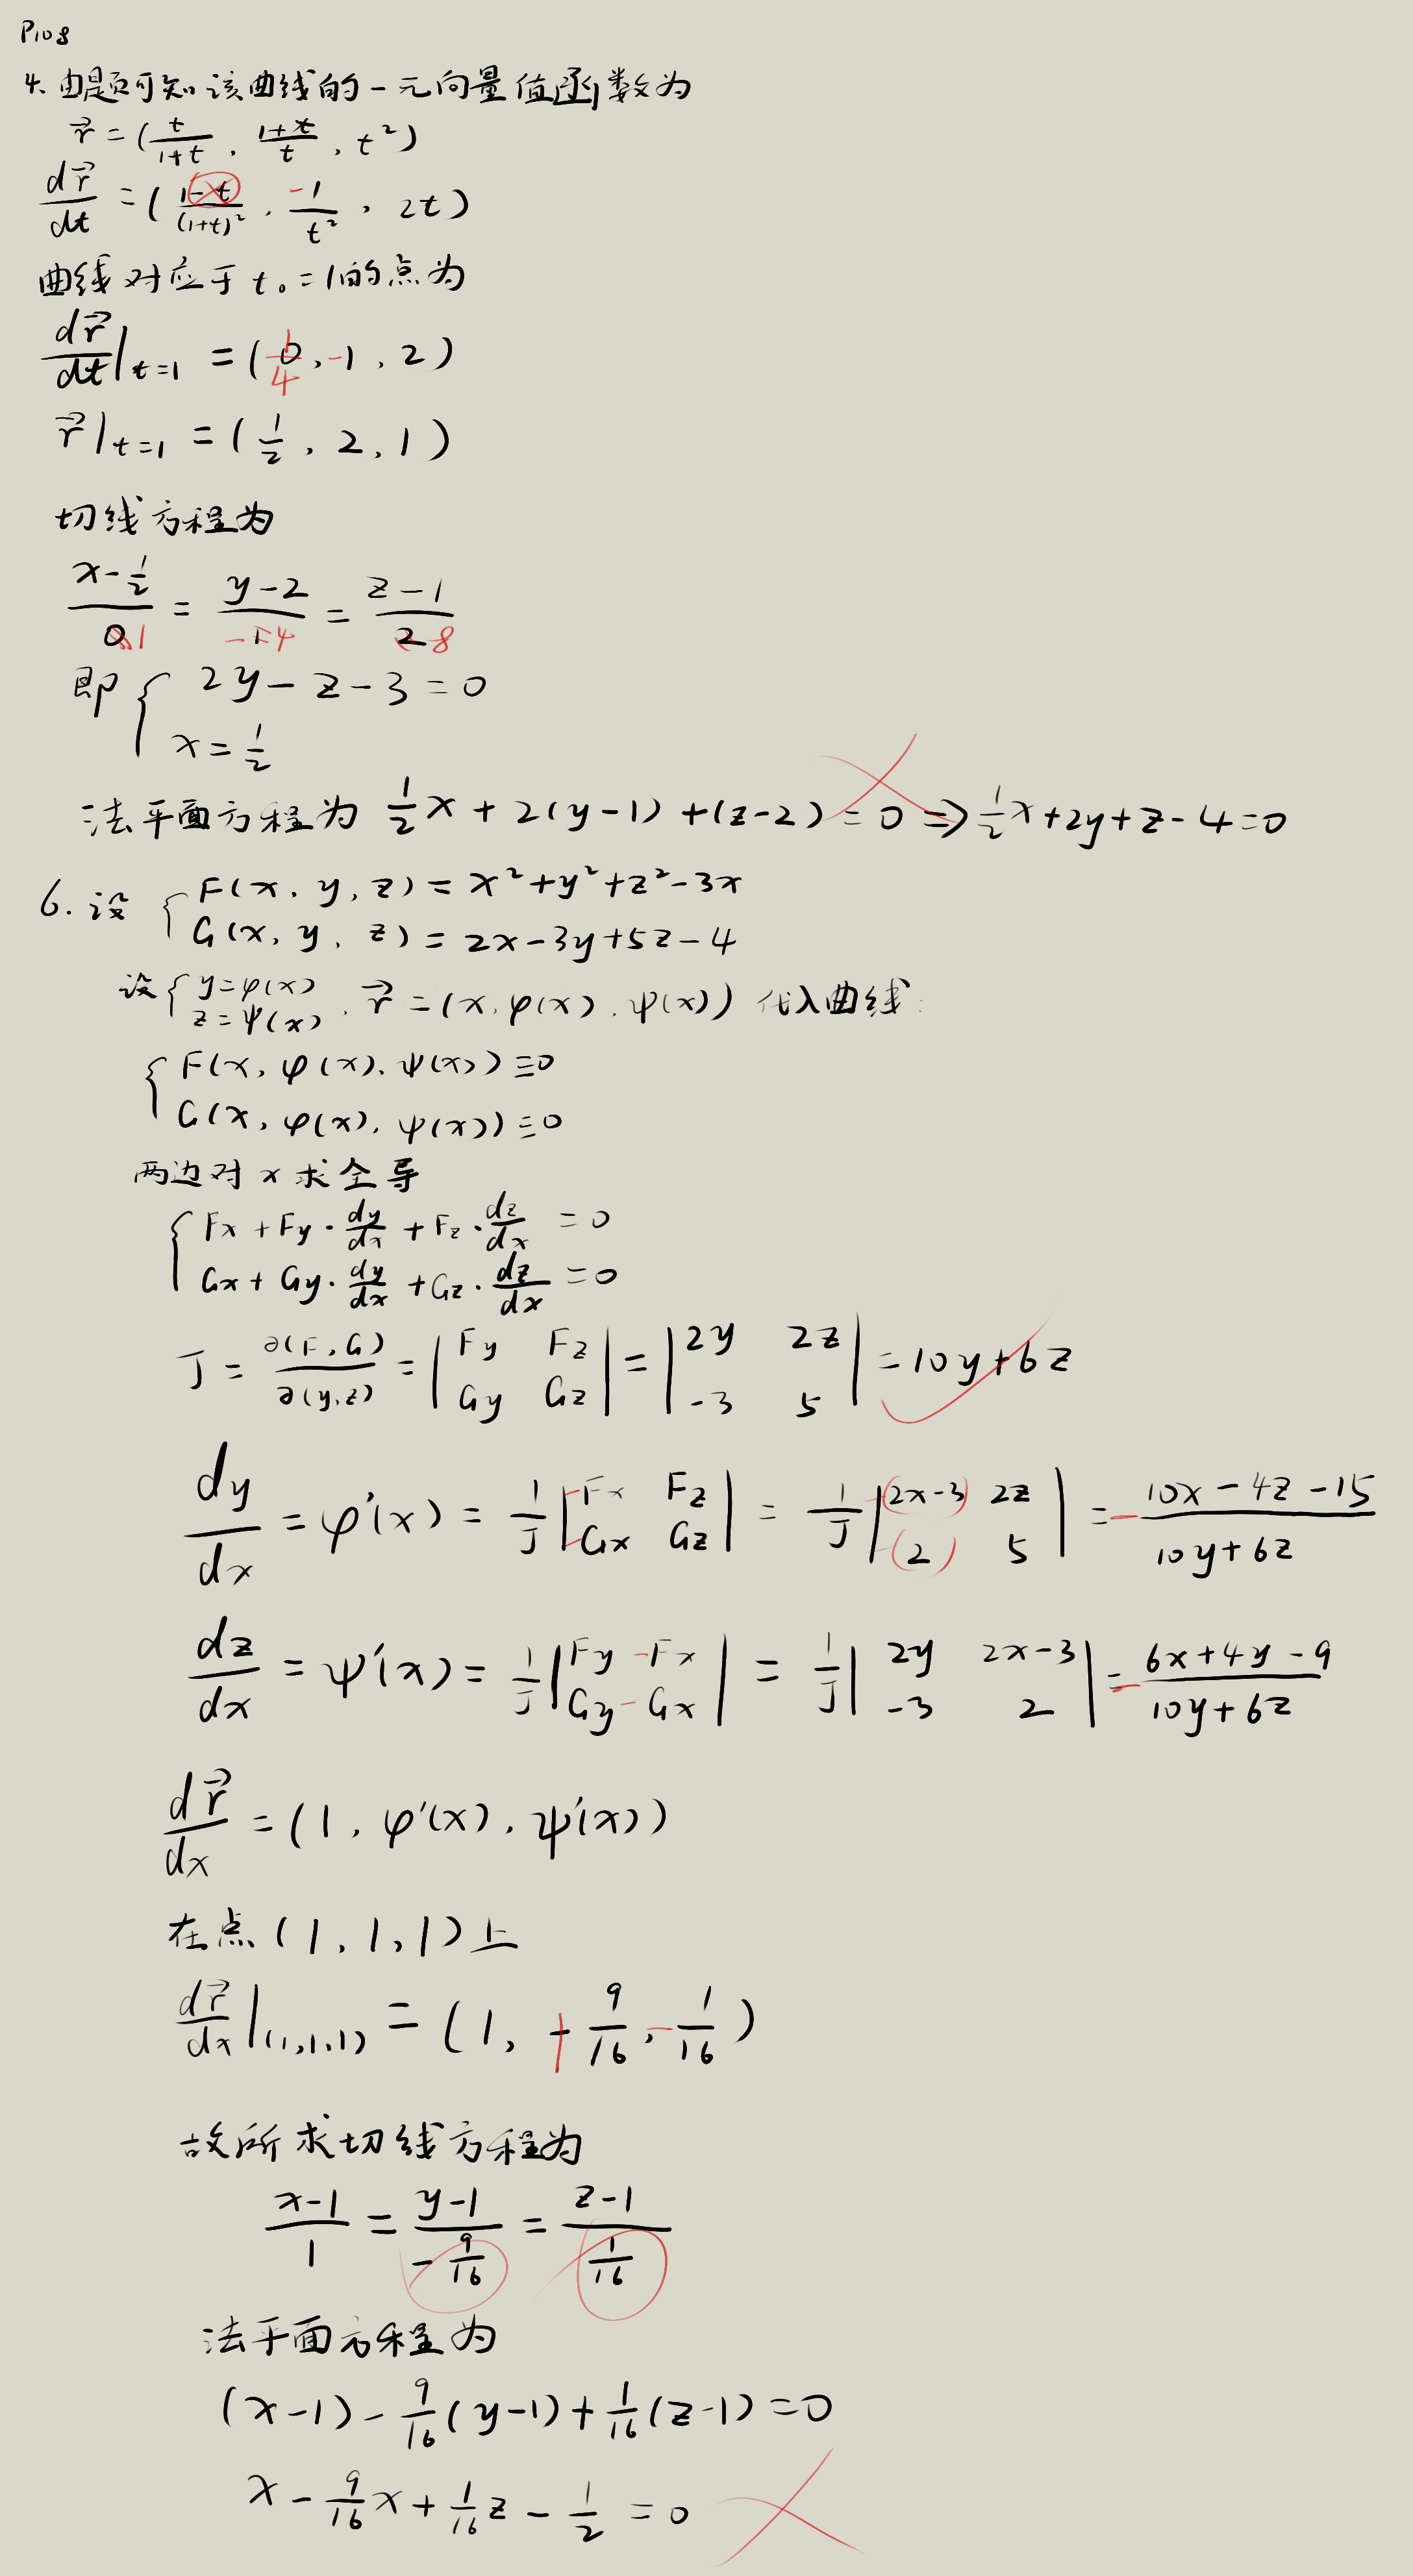 P108
4. 由题可知该曲线的一元向量值函数为
r⃗ = (t/(1+t), (1+t)/t, t²)
dr⃗/dt = ((1-t)/(1+t)², -1/t², 2t)
曲线对应于 t₀=1的点为
dr⃗/dt|t=1 = (0 1/4, -1, 2)
r⃗|t=1 = (1/2, 2, 1)
切线方程为
(x-1/2)/0 1 = (y-2)/-1 -4 = (z-1)/2 8
即 { 2y-z-3=0
x=1/2
法平面方程为 1/2x+2(y-1)+(z-2)=0 ⇒ 1/2x+2y+z-4=0
6. 设 { F(x, y, z) = x²+y²+z²-3x
G(x, y, z) = 2x-3y+5z-4
设 { y=φ(x)
z=ψ(x) , r⃗ = (x, φ(x), ψ(x)) 代入曲线:
{ F(x, φ(x), ψ(x)) ≡0
G(x, φ(x), ψ(x)) ≡0
两边对 x 求全导
{ Fx + Fy·dy/dx + Fz·dz/dx = 0
Gx + Gy·dy/dx + Gz·dz/dx = 0
J = ∂(F,G)/∂(y,z) = |Fy Fz; Gy Gz| = |2y 2z; -3 5| = 10y+6z
dy/dx = φ'(x) = 1/J |-Fx Fz; -Gx Gz| = 1/J |-(2x-3) 2z; -(2) 5| = -(10x-4z-15)/(10y+6z)
dz/dx = ψ'(x) = 1/J |Fy -Fx; Gy -Gx| = 1/J |2y 2x-3; -3 2| = -(6x+4y-9)/(10y+6z)
dr⃗/dx = (1, φ'(x), ψ'(x))
在点 (1, 1, 1) 上
dr⃗/dx|(1,1,1) = (1, +9/16, -1/16)
故所求切线方程为
(x-1)/1 = (y-1)/(-9/16) = (z-1)/(1/16)
法平面方程为
(x-1) - 9/16(y-1) + 1/16(z-1) = 0
x - 9/16x + 1/16z - 1/2 = 0